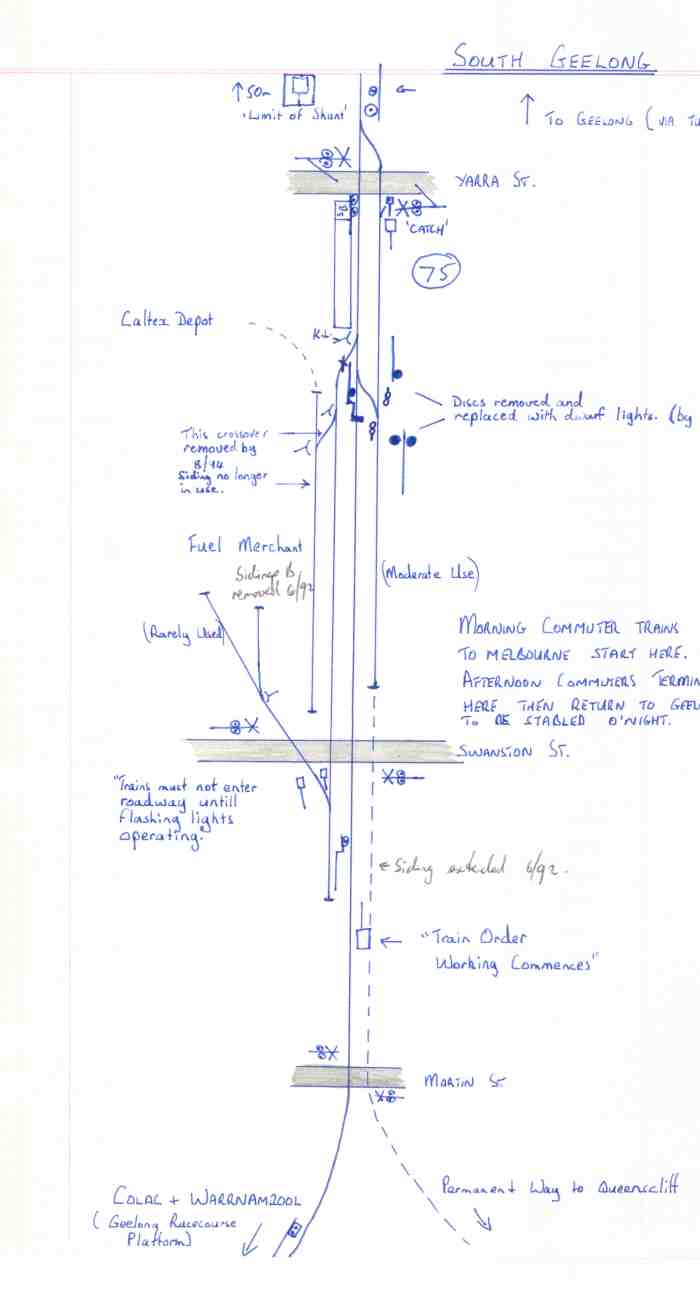 SOUTH GEELONG
↑ 50m
'Limit of Shunt'
↑ TO GEELONG (VIA TU
YARRA ST.
SB
'CATCH'
75
Caltex Depot
Discs removed and
replaced with dwarf lights. (by
This crossover
removed by
8/94
Siding no longer
in use.
Fuel Merchant
Sidings B
removed 6/92
(Moderate Use)
(Rarely Used)
MORNING COMMUTER TRAINS
TO MELBOURNE START HERE.
AFTERNOON COMMUTERS TERMIN
HERE THEN RETURN TO GEEL
TO BE STABLED O'NIGHT.
SWANSTON ST.
"Trains must not enter
roadway untill
flashing lights
operating."
← Siding extended 6/92.
← "Train Order
Working Commences"
MARTIN ST
Permanent Way to Queenscliff
COLAC + WARRNAMBOOL
( Geelong Racecourse
Platform)